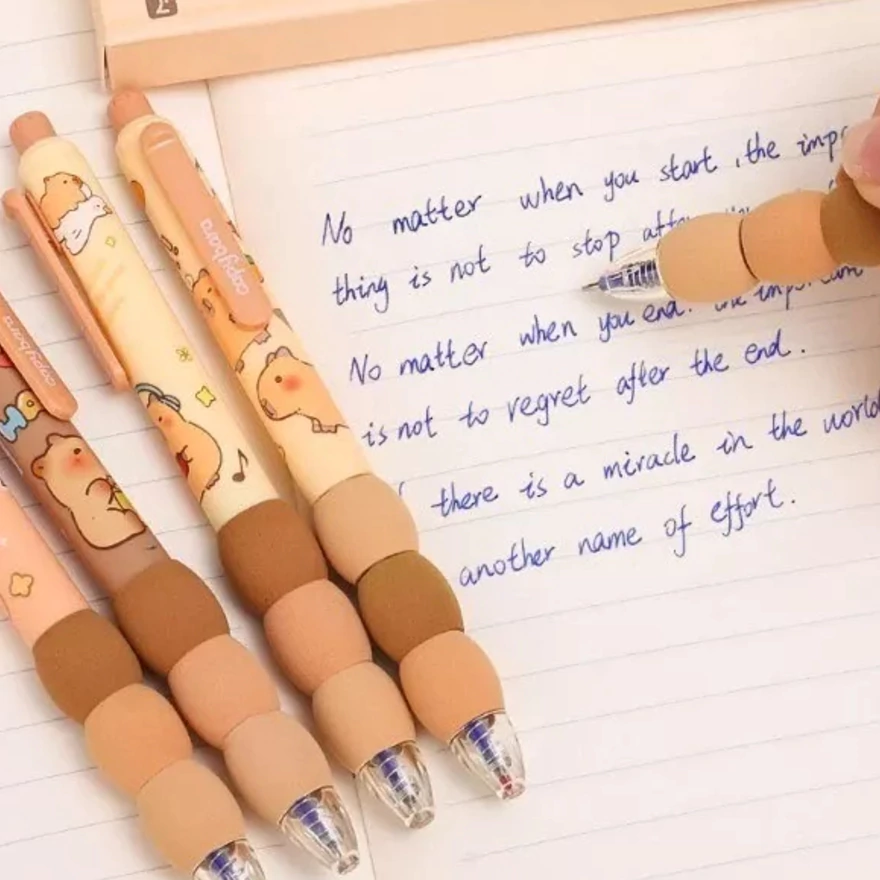 No matter when you start , the
thing is not to stop
No matter when you end. the
is not to regret after the end.
there is a miracle in the world
another name of effort.
copybara
copybara